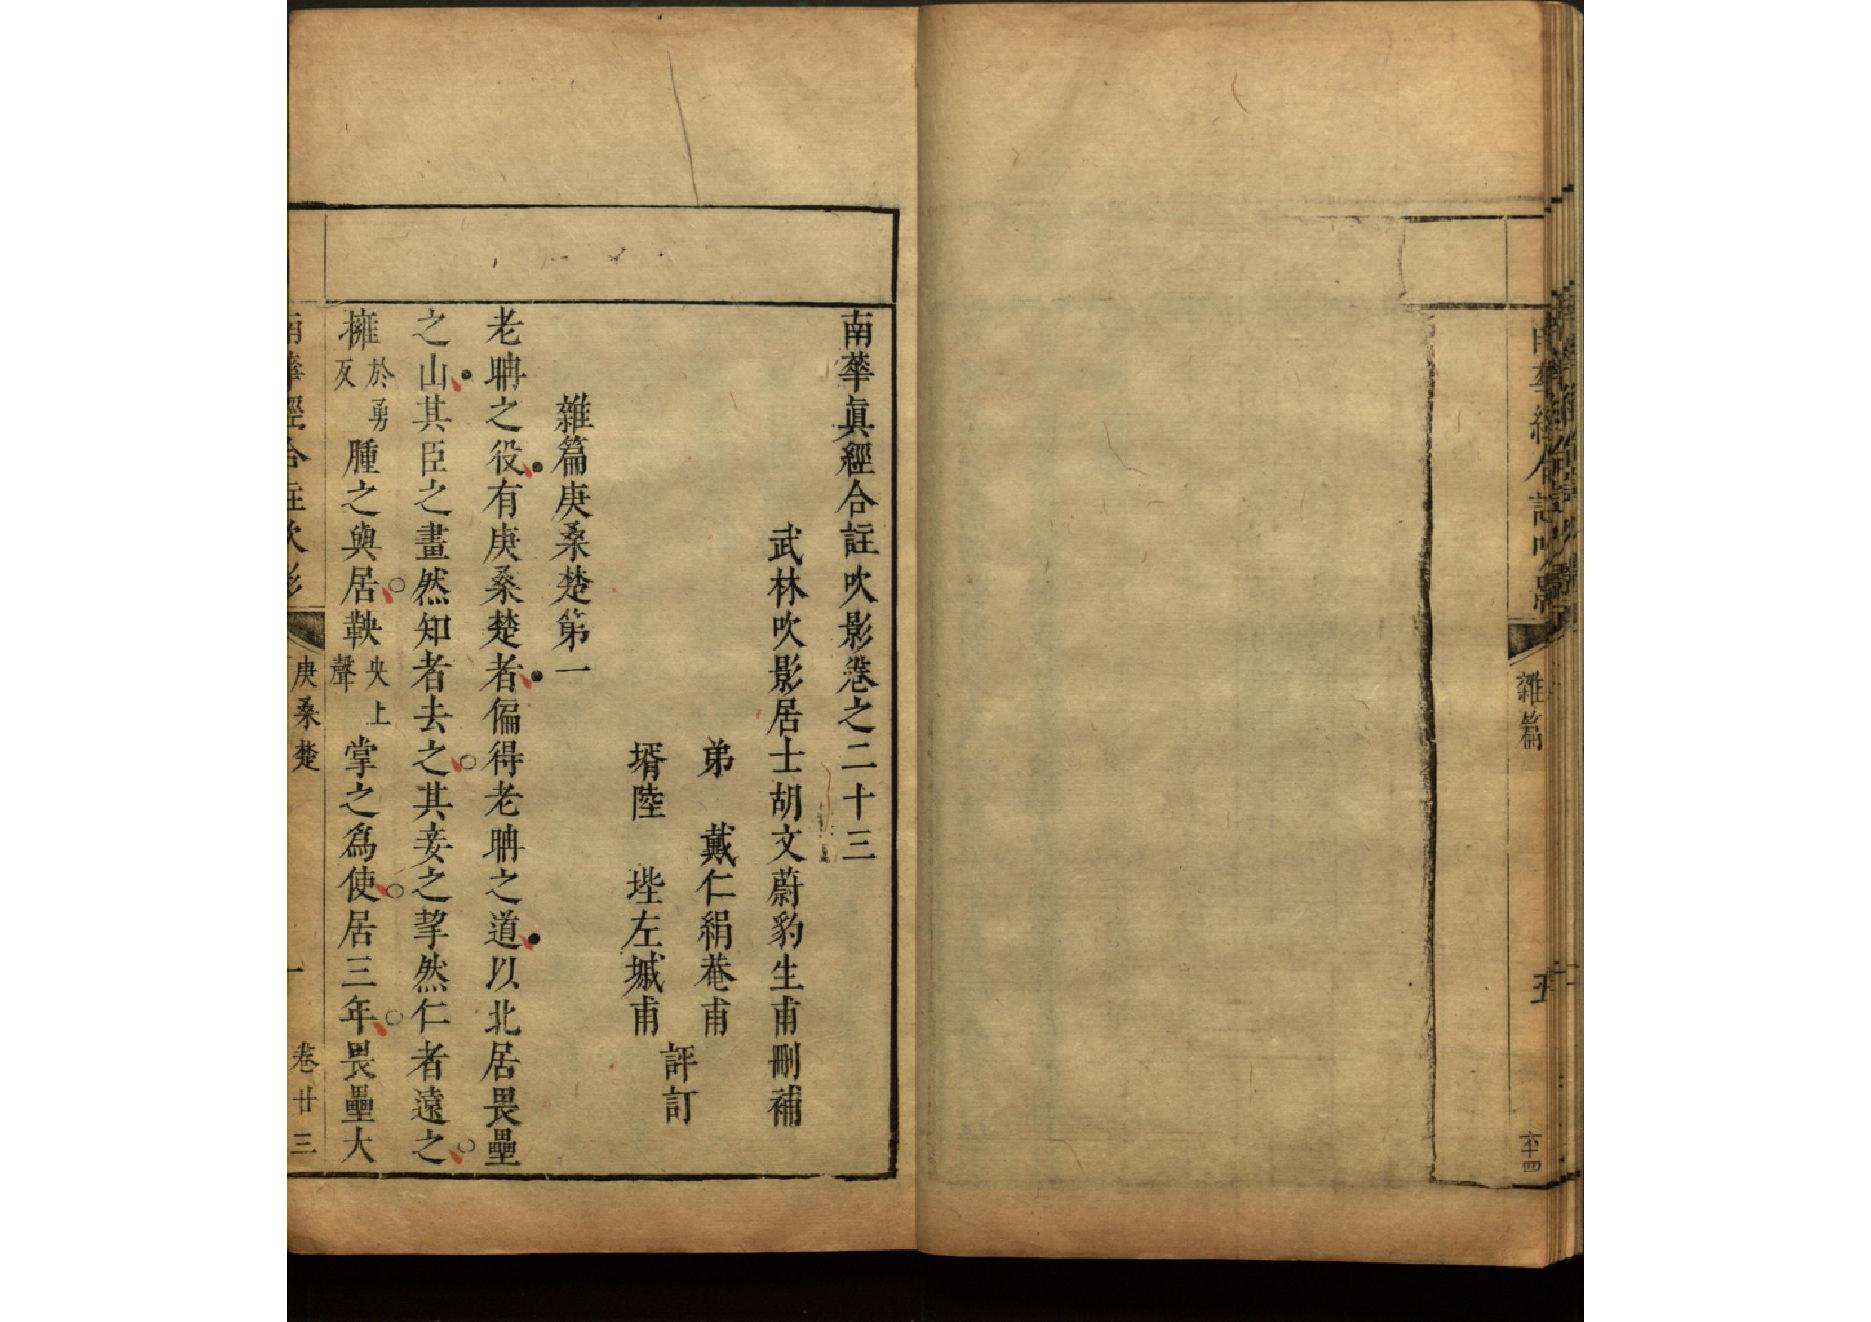 南華眞經合註吹影卷之二十三
武林吹影居士胡文蔚豹生甫刪補
弟　戴仁絹菴甫
壻陸　𡎺左瑊甫
評訂
雜篇庚桑楚第一
老聃之役有庚桑楚者偏得老聃之道以北居畏壘
之山其臣之畫然知者去之其妾之挈然仁者遠之
擁於勇反腫之與居鞅央上聲掌之爲使居三年畏壘大
南華經合註吹影
庚桑楚
一
卷廿三
雜篇
五